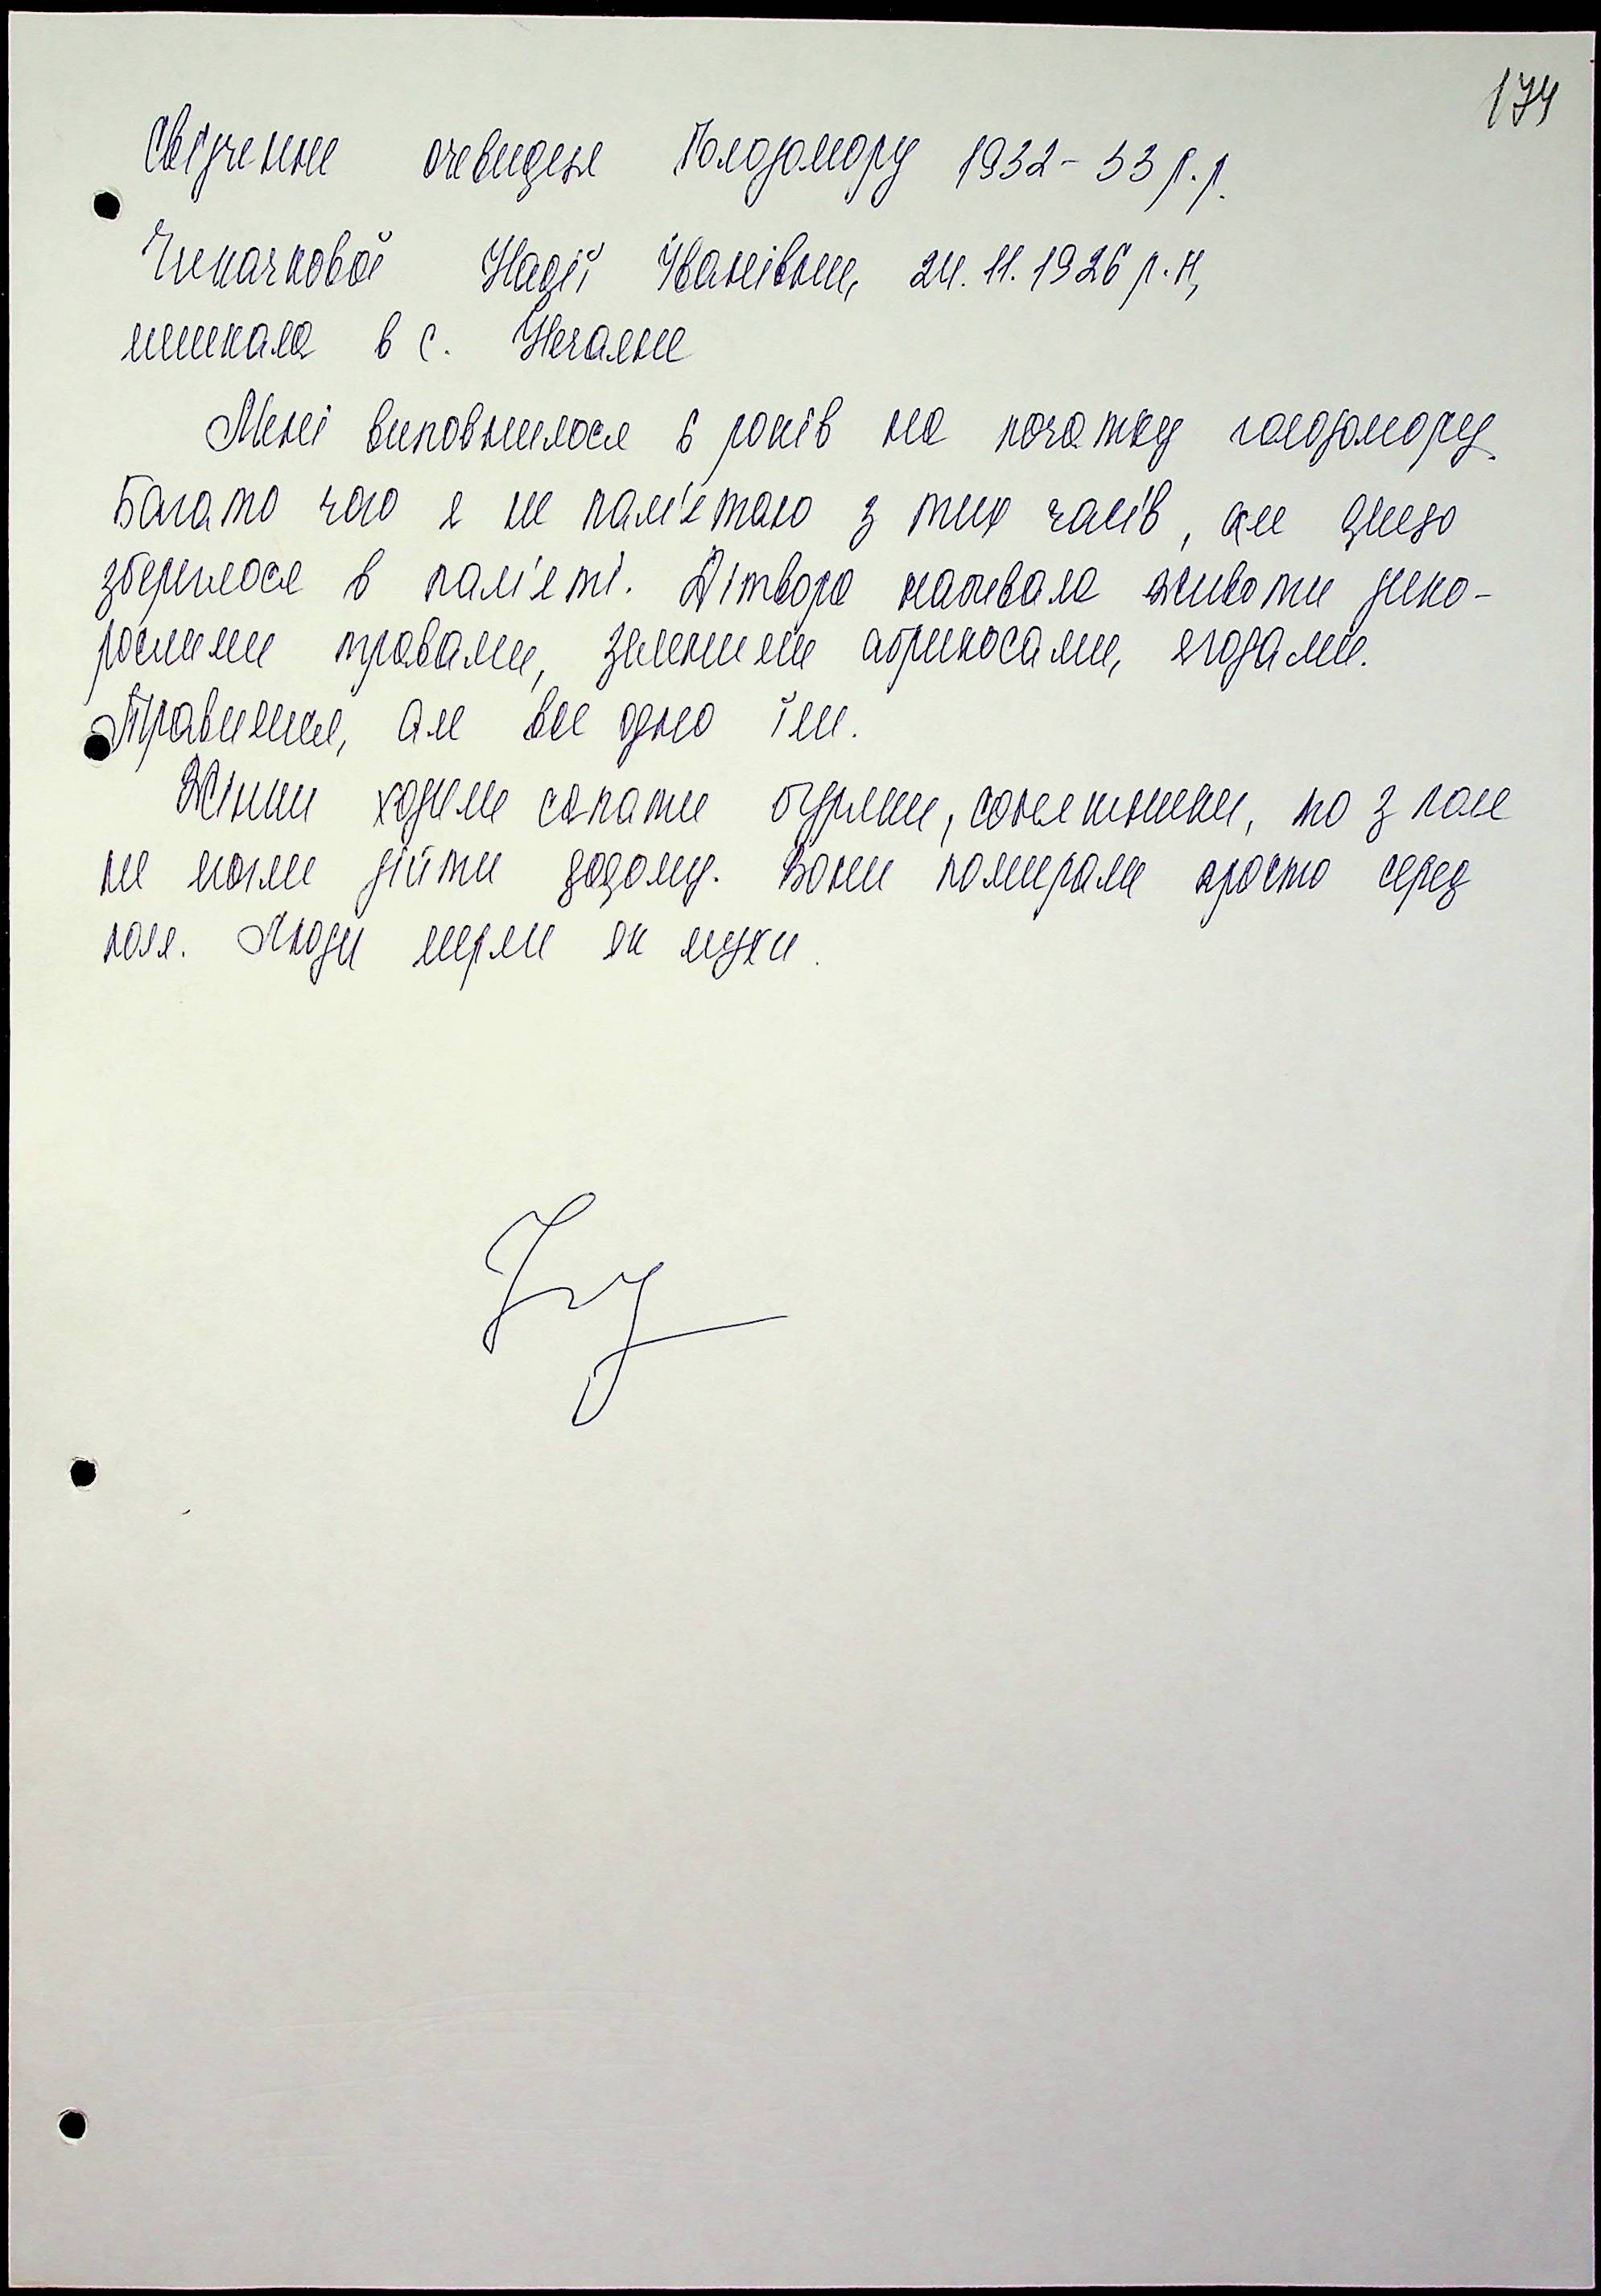 174
Свідчення очевидця Голодомору 1932-33 р.р.
Чикачкової Надії Іванівни, 24.11.1926 р.н,
мешкала в с. Нечаяне
Мені виповнилося 6 років на початку голодомору.
Багато чого я не пам'ятаю з тих часів, але дещо
збереглося в пам'яті. Дітвора набивала животи дико-
рослими травами, зеленими абрикосами, ягодами.
Травилися, але все одно їли.
Жінки ходили сапати буряки, соняшники, то з поля
не могли дійти додому. Вони помирали просто серед
поля. Люди мерли як мухи.